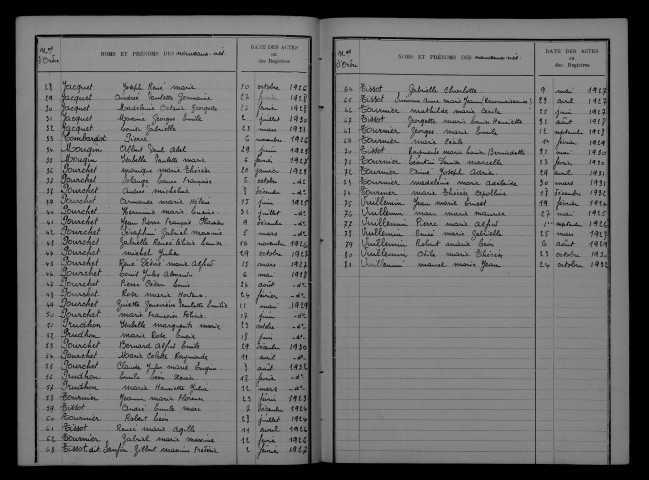 Nos d'Ordre NOMS ET PRÉNOMS DES nouveaux-nés DATE DES ACTES ou des Registres
28 Jacquet Joseph René marie 10 octobre 1926
29 Jacquet André Paulette Germaine 27 1928
30 Jacquet Madeleine Octavie Georgette 12 février 1928
31 Jacquet Maxime Georges Emile 2 juillet 1930
32 Jacquet Louise Gabrielle 22 mars 1931
33 Lombardot Pierre 6 novembre 1926
34 Mougin Albert Paul Abel 29 juin 1928
35 Mougin Isabelle Paulette marie 6 février 1927
36 Pourchet monique marie Thérèse 20 janvier 1923
37 Pourchet Solange Laure Françoise 6 octobre -d°-
38 Pourchet Andrée micheline 8 décembre -d°-
39 Pourchet Armande marie Hélène 15 juin 1925
40 Pourchet Germaine marie Lucie 31 juillet -d°-
41 Pourchet Jean Pierre François 9 décembre -d°-
42 Pourchet Séraphin Gabriel maxime 5 mars -d°-
43 Pourchet Gabrielle Renée Félicie Louise 16 novembre 1926
44 Pourchet michel Jules 29 octobre 1927
45 Pourchet René marie Alfred 15 mars 1927
46 Pourchet Louis Jules Alexandre 6 mai 1928
47 Pourchet Pierre César Louis 24 août -d°-
48 Pourchet Rose marie Hortense 24 février -d°-
49 Pourchet Ginette Geneviève Paulette Emilie 11 mai 1929
50 Pourchet marie Françoise Félicie 17 juin -d°-
51 Prudhon Isabelle marguerite marie 23 octobre -d°-
52 Prudhon marie Rose Lucie 18 juin -d°-
53 Pourchet Bernard Alfred Emile 29 décembre 1930
54 Pourchet Marie Colette Raymonde 11 avril -d°-
55 Pourchet Claude Jules marie Eugène 8 août 1932
56 Prudhon Emile Léon Xavier 18 février -d°-
57 Prudhon marie Henriette Julia 12 mars -d°-
58 Tournier Jeanne marie Florence 23 février 1923
59 Tissot André Emile marc 7 décembre 1924
60 Tournier Robert Léon 28 juillet 1924
61 Tissot René marie 11 avril 1926
62 Tournier Gabriel marie maxime 12 février 1926
63 Tissot dit Sanfin Gilbert maxime Frédéric 2 février 1927
Nos d'Ordre NOMS ET PRÉNOMS DES nouveaux-nés DATE DES ACTES ou des Registres
64 Tissot Gabrielle Charlotte 9 mai 1927
65 Tissot Simone Anne marie Jeanne (Reconnaissance) 29 avril 1927
66 Tournier mathilde marie Cécile 25 juin 1927
67 Tissot Georgette marie Louise Henriette 31 août 1928
68 Tournier Georges marie Emile 12 septembre 1928
69 Tournier marie Cécile 14 février 1929
70 Tissot Raymonde marie Louise Bernadette 31 mai 1930
71 Tournier Léontine Louise marcelle 27 février 1930
72 Tournier Aimé Joseph Adrien 29 avril 1931
73 Tournier madeleine marie adélaïde 30 mars 1931
74 Tournier marie Thérèse Apolline 17 décembre 1932
75 Vuillemin Jean marie Ernest 19 février 1924
76 Vuillemin marie maurice 27 mai 1925
77 Vuillemin Pierre marie Alfred 1er septembre 1926
78 Vuillemin Renée marie Gabrielle 25 mars 1927
79 Vuillemin Robert marie Léon 6 août 1929
80 Vuillemin Odile marie Thérèse 23 octobre 1930
81 Vuillemin marcel marie Jean 24 octobre 1932